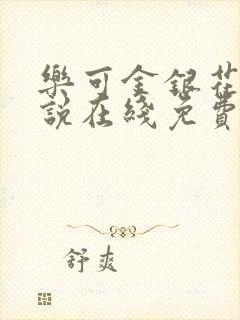 樂可金銀花
說在綫免費
舒爽